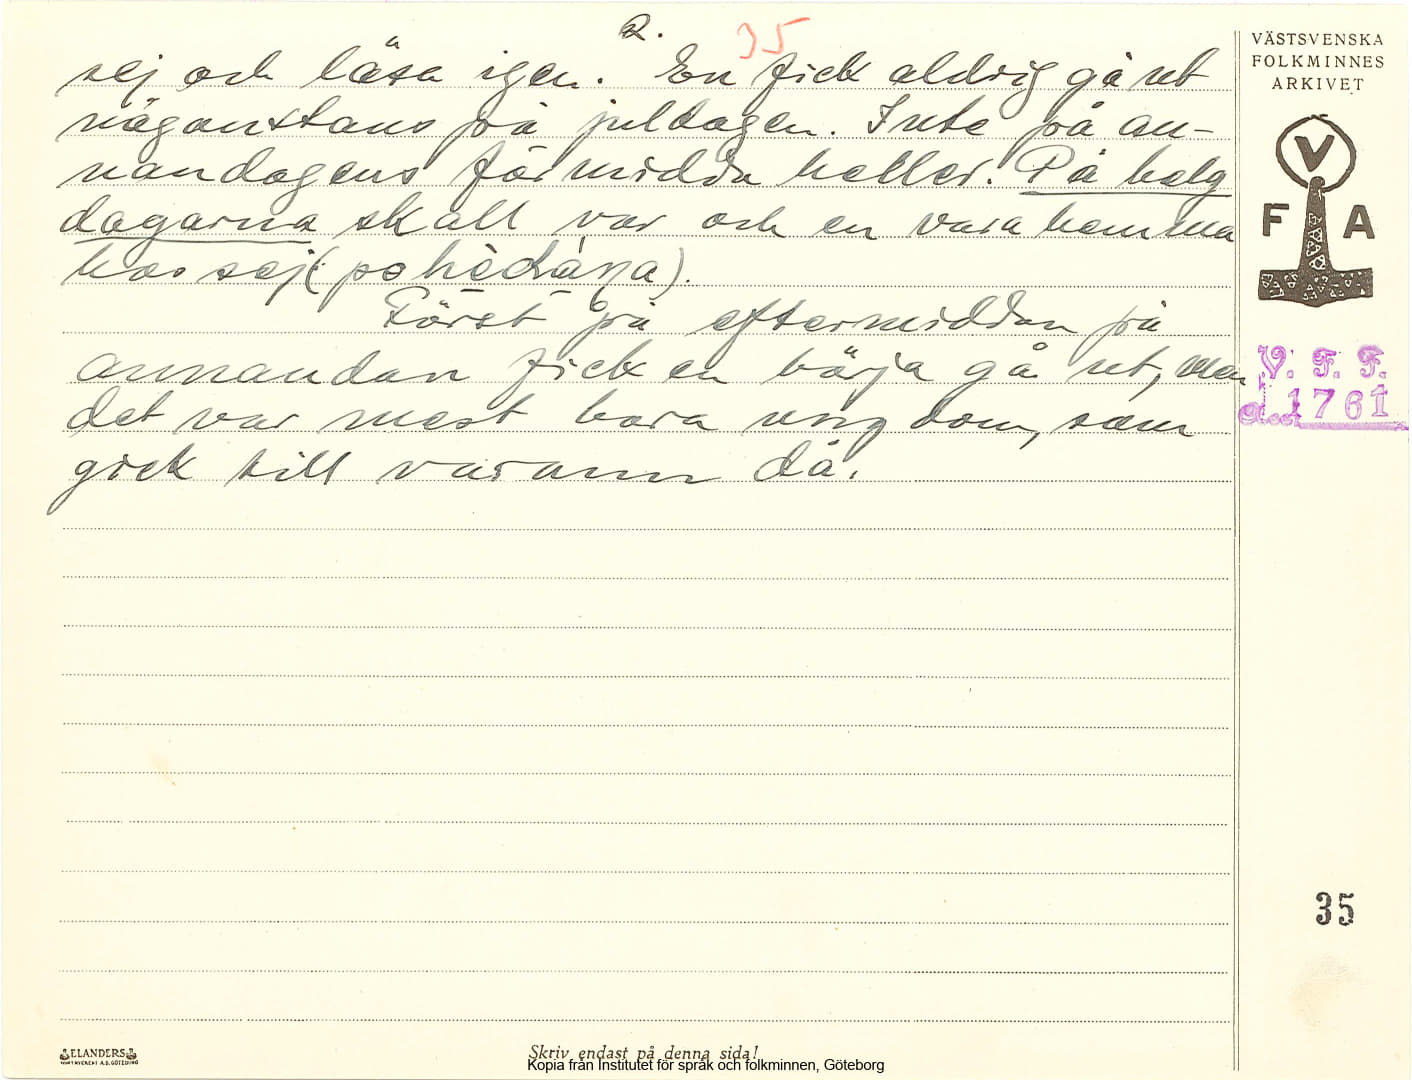 2. 35
sej och läsa igen. En fick aldrig gå ut
någonstans på juldagen. Inte på an-
nandagens förmidda heller. På helg
dagarna skall var och en vara hemma
hos sej
Först på eftermiddan på
annandan fick en börja gå ut, men
det var mest bara ungdom, som
gick till varann då.
VÄSTSVENSKA
FOLKMINNES
ARKIVET
V
F A
V. F. F.
1761
35
ELANDERS
Skriv endast på denna sida!
Kopia från Institutet för språk och folkminnen, Göteborg